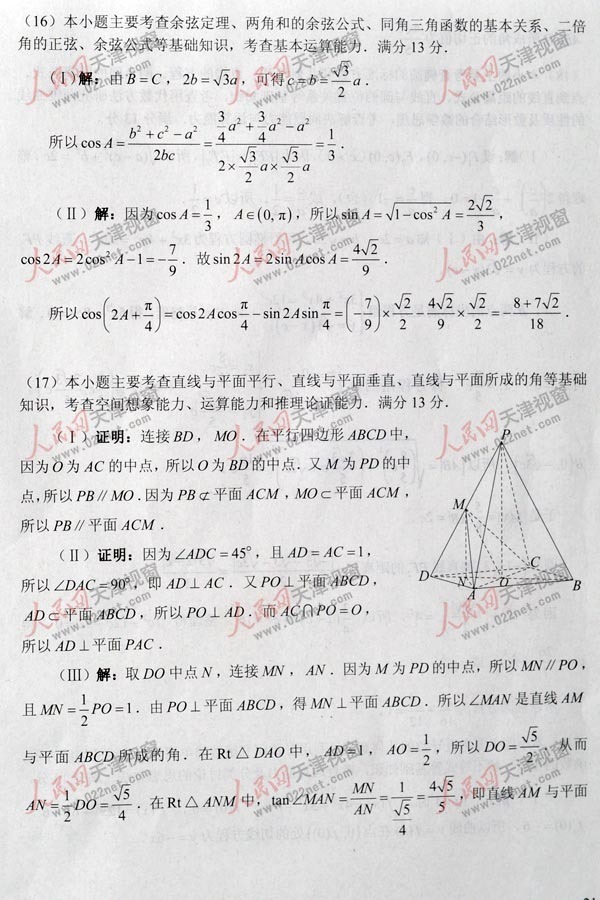 （16）本小题主要考查余弦定理、两角和的余弦公式、同角三角函数的基本关系、二倍
角的正弦、余弦公式等基础知识，考查基本运算能力．满分 13 分．
（Ⅰ）解：由 B = C ，2b = √3a，可得 c = b = (√3/2)a ．
所以 cos A = (b² + c² − a²)/(2bc) = ((3/4)a² + (3/4)a² − a²)/(2 × (√3/2)a × (√3/2)a) = 1/3 ．
（Ⅱ）解：因为 cos A = 1/3 ，A ∈ (0, π)，所以 sin A = √(1 − cos² A) = 2√2/3 ，
cos 2A = 2cos² A − 1 = −7/9 ．故 sin 2A = 2 sin A cos A = 4√2/9 ．
所以 cos(2A + π/4) = cos 2A cos π/4 − sin 2A sin π/4 = (−7/9) × √2/2 − 4√2/9 × √2/2 = −(8 + 7√2)/18 ．
（17）本小题主要考查直线与平面平行、直线与平面垂直、直线与平面所成的角等基础
知识，考查空间想象能力、运算能力和推理论证能力．满分 13 分．
（Ⅰ）证明：连接 BD ，MO ．在平行四边形 ABCD 中，
因为 O 为 AC 的中点，所以 O 为 BD 的中点．又 M 为 PD 的中
点，所以 PB // MO ．因为 PB ⊄ 平面 ACM ，MO ⊂ 平面 ACM ，
所以 PB // 平面 ACM ．
（Ⅱ）证明：因为 ∠ADC = 45°，且 AD = AC = 1，
所以 ∠DAC = 90°，即 AD ⊥ AC ．又 PO ⊥ 平面 ABCD，
AD ⊂ 平面 ABCD，所以 PO ⊥ AD ．而 AC ∩ PO = O，
所以 AD ⊥ 平面 PAC ．
（Ⅲ）解：取 DO 中点 N，连接 MN ，AN ．因为 M 为 PD 的中点，所以 MN // PO，
且 MN = 1/2 PO = 1．由 PO ⊥ 平面 ABCD，得 MN ⊥ 平面 ABCD．所以 ∠MAN 是直线 AM
与平面 ABCD 所成的角．在 Rt △ DAO 中，AD = 1，AO = 1/2，所以 DO = √5/2．从而
AN = 1/2 DO = √5/4 ．在 Rt △ ANM 中，tan∠MAN = MN/AN = 1/(√5/4) = 4√5/5，即直线 AM 与平面
P
M
D
N
A
O
C
B
人民网天津视窗
www.022net.com